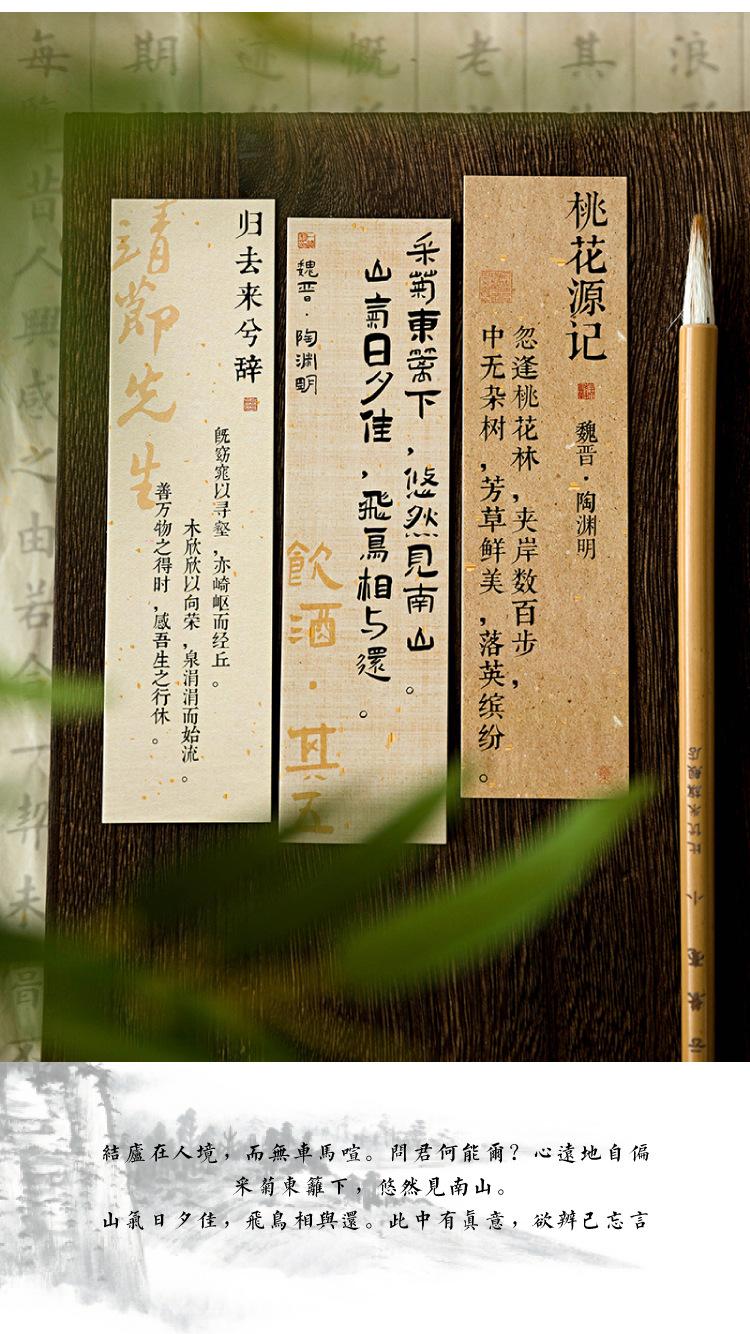 每 期 述 慨 老 其 浪
覽昔人興感之由若合
桃花源记
魏晋·陶渊明
忽逢桃花林，夹岸数百步，
中无杂树，芳草鲜美，落英缤纷。
采菊東篱下，悠然見南山。
山氣日夕佳，飛鳥相与還。
魏晋·陶淵明
飲酒·其五
归去来兮辞
既窈窕以寻壑，亦崎岖而经丘。
木欣欣以向荣，泉涓涓而始流。
善万物之得时，感吾生之行休。
靖節先生
結廬在人境，而無車馬喧。問君何能爾？心遠地自偏
采菊東籬下，悠然見南山。
山氣日夕佳，飛鳥相與還。此中有眞意，欲辨已忘言